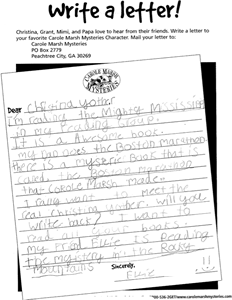 Write a letter!
Christina, Grant, Mimi, and Papa love to hear from their friends. Write a letter to
your favorite Carole Marsh Mysteries Character. Mail your letter to:
Carole Marsh Mysteries
PO Box 2779
Peachtree City, GA 30269
CAROLE MARSH
MYSTERIES
Dear Christina Yother
I'm reading the Mighty Mississippi
in my group.
It is a Awesome book.
My dad does the Boston marathon
there is a mystery book that is
called the Boston marathon
that Carole Marsh made.
I really want to meet the
real Christina Yother. will you
write back? I want to
read your books
my friend is Reading
the mystery in the Rocky
Mountains
Sincerely,
www.carolemarshmysteries.com